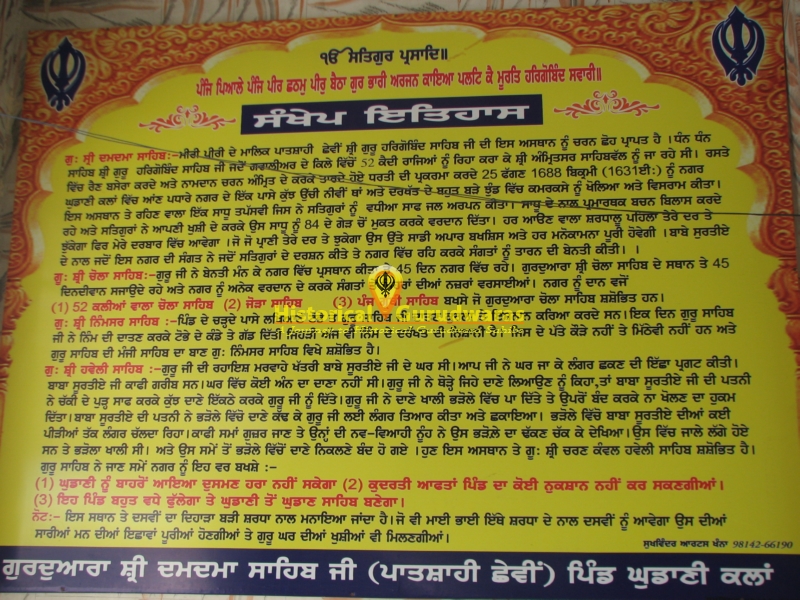 ੴ ਸਤਿਗੁਰ ਪ੍ਰਸਾਦਿ॥
ਪੰਜਿ ਪਿਆਲੇ ਪੰਜਿ ਪੀਰ ਛਠਮੁ ਪੀਰੁ ਬੈਠਾ ਗੁਰ ਭਾਰੀ ਅਰਜਨ ਕਾਇਆ ਪਲਟਿ ਕੈ ਮੂਰਤਿ ਹਰਿਗੋਬਿੰਦ ਸਵਾਰੀ॥
ਸੰਖੇਪ ਇਤਿਹਾਸ
ਗੁ: ਸ੍ਰੀ ਦਮਦਮਾ ਸਾਹਿਬ:-ਮੀਰੀ ਪੀਰੀ ਦੇ ਮਾਲਿਕ ਪਾਤਸ਼ਾਹੀ ਛੇਵੀਂ ਸ੍ਰੀ ਗੁਰੂ ਹਰਿਗੋਬਿੰਦ ਸਾਹਿਬ ਜੀ ਦੀ ਇਸ ਅਸਥਾਨ ਨੂੰ ਚਰਨ ਛੋਹ ਪ੍ਰਾਪਤ ਹੈ । ਧੰਨ ਧੰਨ
ਸਾਹਿਬ ਸ੍ਰੀ ਗੁਰੂ ਹਰਿਗੋਬਿੰਦ ਸਾਹਿਬ ਜੀ ਜਦੋਂ ਗਵਾਲੀਅਰ ਦੇ ਕਿਲੇ ਵਿੱਚੋਂ 52 ਕੈਦੀ ਰਾਜਿਆਂ ਨੂੰ ਰਿਹਾ ਕਰਾ ਕੇ ਸ੍ਰੀ ਅੰਮ੍ਰਿਤਸਰ ਸਾਹਿਬਵੱਲ ਨੂੰ ਜਾ ਰਹੇ ਸੀ। ਰਸਤੇ
ਵਿੱਚ ਰੈਣ ਬਸੇਰਾ ਕਰਦੇ ਅਤੇ ਨਾਮਦਾਨ ਚਰਨ ਅੰਮ੍ਰਿਤ ਦੇ ਕਰਕੇ ਤਾਰਦੇ ਹੋਏ ਧਰਤੀ ਦੀ ਪ੍ਰਕਰਮਾ ਕਰਦੇ 25 ਫੱਗਣ 1688 ਬਿਕ੍ਰਮੀ (1631ਈ:) ਨੂੰ ਨਗਰ
ਘੁਡਾਣੀ ਕਲਾਂ ਵਿੱਚ ਆਂਣ ਪਧਾਰੇ ਨਗਰ ਦੇ ਇੱਕ ਪਾਸੇ ਕੁੱਝ ਉੱਚੀ ਨੀਵੀਂ ਥਾਂ ਅਤੇ ਦਰੱਖਤ ਦੇ ਬਹੁਤ ਬੜੇ ਝੁੰਡ ਵਿੱਚ ਕਮਰਕਸੇ ਨੂੰ ਖੋਲਿਆ ਅਤੇ ਵਿਸਰਾਮ ਕੀਤਾ।
ਇਸ ਅਸਥਾਨ ਤੇ ਰਹਿਣ ਵਾਲਾ ਇੱਕ ਸਾਧੂ ਤਪੱਸਵੀ ਜਿਸ ਨੇ ਸਤਿਗੁਰਾਂ ਨੂੰ ਵਧੀਆ ਸਾਫ ਜਲ ਅਰਪਨ ਕੀਤਾ। ਸਾਧੂ ਦੇ ਨਾਲ ਪ੍ਰਮਾਰਥਕ ਬਚਨ ਬਿਲਾਸ ਕਰਦੇ
ਰਹੇ ਅਤੇ ਸਤਿਗੁਰਾਂ ਨੇ ਆਪਣੀ ਖੁਸ਼ੀ ਦੇ ਕਰਕੇ ਉਸ ਸਾਧੂ ਨੂੰ 84 ਦੇ ਗੇੜ ਚੋਂ ਮੁਕਤ ਕਰਕੇ ਵਰਦਾਨ ਦਿੱਤਾ। ਹਰ ਆਉਣ ਵਾਲਾ ਸ਼ਰਧਾਲੂ ਪਹਿਲਾਂ ਤੇਰੇ ਦਰ ਤੇ
ਝੁਕੇਗਾ ਫਿਰ ਮੇਰੇ ਦਰਬਾਰ ਵਿੱਚ ਆਵੇਗਾ । ਜੋ ਜੋ ਪ੍ਰਾਣੀ ਤੇਰੇ ਦਰ ਤੇ ਝੁਕੇਗਾ ਉਸ ਉੱਤੇ ਸਾਡੀ ਅਪਾਰ ਬਖਸ਼ਿਸ਼ ਅਤੇ ਹਰ ਮਨੋਕਾਮਨਾ ਪੂਰੀ ਹੋਵੇਗੀ । ਬਾਬੇ ਸੂਰਤੀਏ
ਦੇ ਨਾਲ ਜਦੋਂ ਇਸ ਨਗਰ ਦੀ ਸੰਗਤ ਨੇ ਜਦੋਂ ਸਤਿਗੁਰਾਂ ਦੇ ਦਰਸ਼ਨ ਕੀਤੇ ਤੇ ਨਗਰ ਵਿੱਚ ਰਹਿ ਕਰਕੇ ਸੰਗਤਾਂ ਨੂੰ ਤਾਰਨ ਦੀ ਬੇਨਤੀ ਕੀਤੀ। ।
ਗੁ: ਸ਼੍ਰੀ ਚੋਲਾ ਸਾਹਿਬ:-ਗੁਰੂ ਜੀ ਨੇ ਬੇਨਤੀ ਮੰਨ ਕੇ ਨਗਰ ਵਿੱਚ ਪ੍ਰਸਥਾਨ ਕੀਤਾ 45 ਦਿਨ ਨਗਰ ਵਿੱਚ ਰਹੇ। ਗੁਰਦੁਆਰਾ ਸ਼੍ਰੀ ਚੋਲਾ ਸਾਹਿਬ ਦੇ ਸਥਾਨ ਤੇ 45
ਦਿਨਦੀਵਾਨ ਸਜਾਉਂਦੇ ਰਹੇ ਅਤੇ ਨਗਰ ਨੂੰ ਅਨੇਕ ਵਰਦਾਨ ਦੇ ਕਰਕੇ ਸੰਗਤਾਂ ਦੀਆਂ ਨਜ਼ਰਾਂ ਵਰਸਾਈਆਂ। ਨਗਰ ਨੂੰ ਦਾਨ ਵਜੋਂ
(1) 52 ਕਲੀਆਂ ਵਾਲਾ ਚੋਲਾ ਸਾਹਿਬ (2) ਜੋੜਾ ਸਾਹਿਬ (3) ਪੰਜ ਸਾਹਿਬ ਬਖਸੇ ਜੋ ਗੁਰਦੁਆਰਾ ਚੋਲਾ ਸਾਹਿਬ ਸ਼ਸ਼ੋਭਿਤ ਹਨ।
Historical Gurudwaras
ਗੁ: ਸ਼੍ਰੀ ਨਿੰਮਸਰ ਸਾਹਿਬ :-ਪਿੰਡ ਦੇ ਚੜ੍ਹਦੇ ਪਾਸੇ ਕਰਿਆ ਕਰਦੇ ਸਨ।ਇਕ ਦਿਨ ਗੁਰੂ ਸਾਹਿਬ
ਜੀ ਨੇ ਨਿੰਮ ਦੀ ਦਾਤਣ ਕਰਕੇ ਟੋਭੇ ਦੇ ਕੰਡੇ ਤੇ ਗੱਡ ਦਿੱਤੀ ਜਿਹੜੀ ਅੱਜ ਵੀ ਨਿੰਮ ਦੇ ਦਰੱਖਤ ਦੀ ਨਿਸ਼ਾਨੀ ਹੈ। ਜਿਸ ਦੇ ਪੱਤੇ ਕੌੜੇ ਨਹੀਂ ਤੇ ਮਿੱਠੇਵੀ ਨਹੀਂ ਹਨ ਅਤੇ
ਗੁਰੂ ਸਾਹਿਬ ਦੀ ਮੰਜੀ ਸਾਹਿਬ ਦਾ ਬਾਣ ਗੁ: ਨਿੰਮਸਰ ਸਾਹਿਬ ਵਿਖੇ ਸ਼ਸ਼ੋਭਿਤ ਹੈ।
ਗੁ: ਸ਼੍ਰੀ ਹਵੇਲੀ ਸਾਹਿਬ :- ਗੁਰੂ ਜੀ ਦੀ ਰਹਾਇਸ਼ ਮਰਵਾਹੇ ਖੱਤਰੀ ਬਾਬੇ ਸੂਰਤੀਏ ਜੀ ਦੇ ਘਰ ਸੀ।ਆਪ ਜੀ ਨੇ ਘਰ ਜਾ ਕੇ ਲੰਗਰ ਛਕਣ ਦੀ ਇੱਛਾ ਪ੍ਰਗਟ ਕੀਤੀ।
ਬਾਬਾ ਸੂਰਤੀਏ ਜੀ ਕਾਫੀ ਗਰੀਬ ਸਨ। ਘਰ ਵਿੱਚ ਕੋਈ ਅੰਨ ਦਾ ਦਾਣਾ ਨਹੀਂ ਸੀ।ਗੁਰੂ ਜੀ ਨੇ ਥੋੜ੍ਹੇ ਜਿਹੇ ਦਾਣੇ ਲਿਆਉਣ ਨੂੰ ਕਿਹਾ,ਤਾਂ ਬਾਬਾ ਸੂਰਤੀਏ ਜੀ ਦੀ ਪਤਨੀ
ਨੇ ਚੱਕੀ ਦੇ ਪੁੜ੍ਹ ਸਾਫ ਕਰਕੇ ਕੁੱਝ ਦਾਣੇ ਇੱਕਠੇ ਕਰਕੇ ਗੁਰੂ ਜੀ ਨੂੰ ਦਿੱਤੇ।ਗੁਰੂ ਜੀ ਨੇ ਦਾਣੇ ਖਾਲੀ ਭੜੋਲੇ ਵਿੱਚ ਪਾ ਦਿੱਤੇ ਤੇ ਉਪਰੋਂ ਬੰਦ ਕਰਕੇ ਨਾ ਖੋਲਣ ਦਾ ਹੁਕਮ
ਦਿੱਤਾ।ਬਾਬਾ ਸੂਰਤੀਏ ਦੀ ਪਤਨੀ ਨੇ ਭੜੋਲੇ ਵਿੱਚੋਂ ਦਾਣੇ ਕੱਢ ਕੇ ਗੁਰੂ ਜੀ ਲਈ ਲੰਗਰ ਤਿਆਰ ਕੀਤਾ ਅਤੇ ਛਕਾਇਆ। ਭੜੋਲੇ ਵਿੱਚੋਂ ਬਾਬਾ ਸੂਰਤੀਏ ਦੀਆਂ ਕਈ
ਪੀੜੀਆਂ ਤੱਕ ਲੰਗਰ ਚੱਲਦਾ ਰਿਹਾ।ਕਾਫੀ ਸਮਾਂ ਗੁਜ਼ਰ ਜਾਣ ਤੇ ਉਨ੍ਹਾਂ ਦੀ ਨਵ-ਵਿਆਹੀ ਨੂੰਹ ਨੇ ਉਸ ਭੜੋਲੇ ਦਾ ਢੱਕਣ ਚੱਕ ਕੇ ਦੇਖਿਆ।ਉਸ ਵਿੱਚ ਜਾਲੇ ਲੱਗੇ ਹੋਏ
ਸਨ ਤੇ ਭੜੋਲਾ ਖਾਲੀ ਸੀ। ਅਤੇ ਉਸ ਸਮੇਂ ਤੋਂ ਭੜੋਲੇ ਵਿੱਚੋਂ ਦਾਣੇ ਨਿਕਲਣੇ ਬੰਦ ਹੋ ਗਏ ।ਹੁਣ ਇਸ ਅਸਥਾਨ ਤੇ ਗੁ: ਸ਼੍ਰੀ ਚਰਣ ਕੰਵਲ ਹਵੇਲੀ ਸਾਹਿਬ ਸ਼ਸ਼ੋਭਿਤ ਹੈ।
ਗੁਰੂ ਸਾਹਿਬ ਨੇ ਜਾਣ ਸਮੇਂ ਨਗਰ ਨੂੰ ਇਹ ਵਰ ਬਖਸ਼ੇ :-
(1) ਘੁਡਾਣੀ ਨੂੰ ਬਾਹਰੋਂ ਆਇਆ ਦੁਸਮਣ ਹਰਾ ਨਹੀਂ ਸਕੇਗਾ (2) ਕੁਦਰਤੀ ਆਫਤਾਂ ਪਿੰਡ ਦਾ ਕੋਈ ਨੁਕਸ਼ਾਨ ਨਹੀਂ ਕਰ ਸਕਣਗੀਆਂ।
(3) ਇਹ ਪਿੰਡ ਬਹੁਤ ਵਧੇ ਫੁੱਲੇਗਾ ਤੇ ਘੁਡਾਣੀ ਤੋਂ ਘੁਡਾਣ ਸਾਹਿਬ ਬਣੇਗਾ।
ਨੋਟ:- ਇਸ ਸਥਾਨ ਤੇ ਦਸਵੀਂ ਦਾ ਦਿਹਾੜਾ ਬੜੀ ਸ਼ਰਧਾ ਨਾਲ ਮਨਾਇਆ ਜਾਂਦਾ ਹੈ।ਜੋ ਵੀ ਮਾਈ ਭਾਈ ਇੱਥੇ ਸ਼ਰਧਾ ਦੇ ਨਾਲ ਦਸਵੀਂ ਨੂੰ ਆਵੇਗਾ ਉਸ ਦੀਆਂ
ਸਾਰੀਆਂ ਮਨ ਦੀਆਂ ਇਛਾਵਾਂ ਪੂਰੀਆਂ ਹੋਣਗੀਆਂ ਤੇ ਗੁਰੂ ਘਰ ਦੀਆਂ ਖੁਸ਼ੀਆਂ ਵੀ ਮਿਲਣਗੀਆਂ।
ਸੁਖਵਿੰਦਰ ਆਰਟਸ ਖੰਨਾ 98142-66190
ਗੁਰਦੁਆਰਾ ਸ਼੍ਰੀ ਦਮਦਮਾ ਸਾਹਿਬ ਜੀ (ਪਾਤਸ਼ਾਹੀ ਛੇਵੀਂ) ਪਿੰਡ ਘੁਡਾਣੀ ਕਲਾਂ